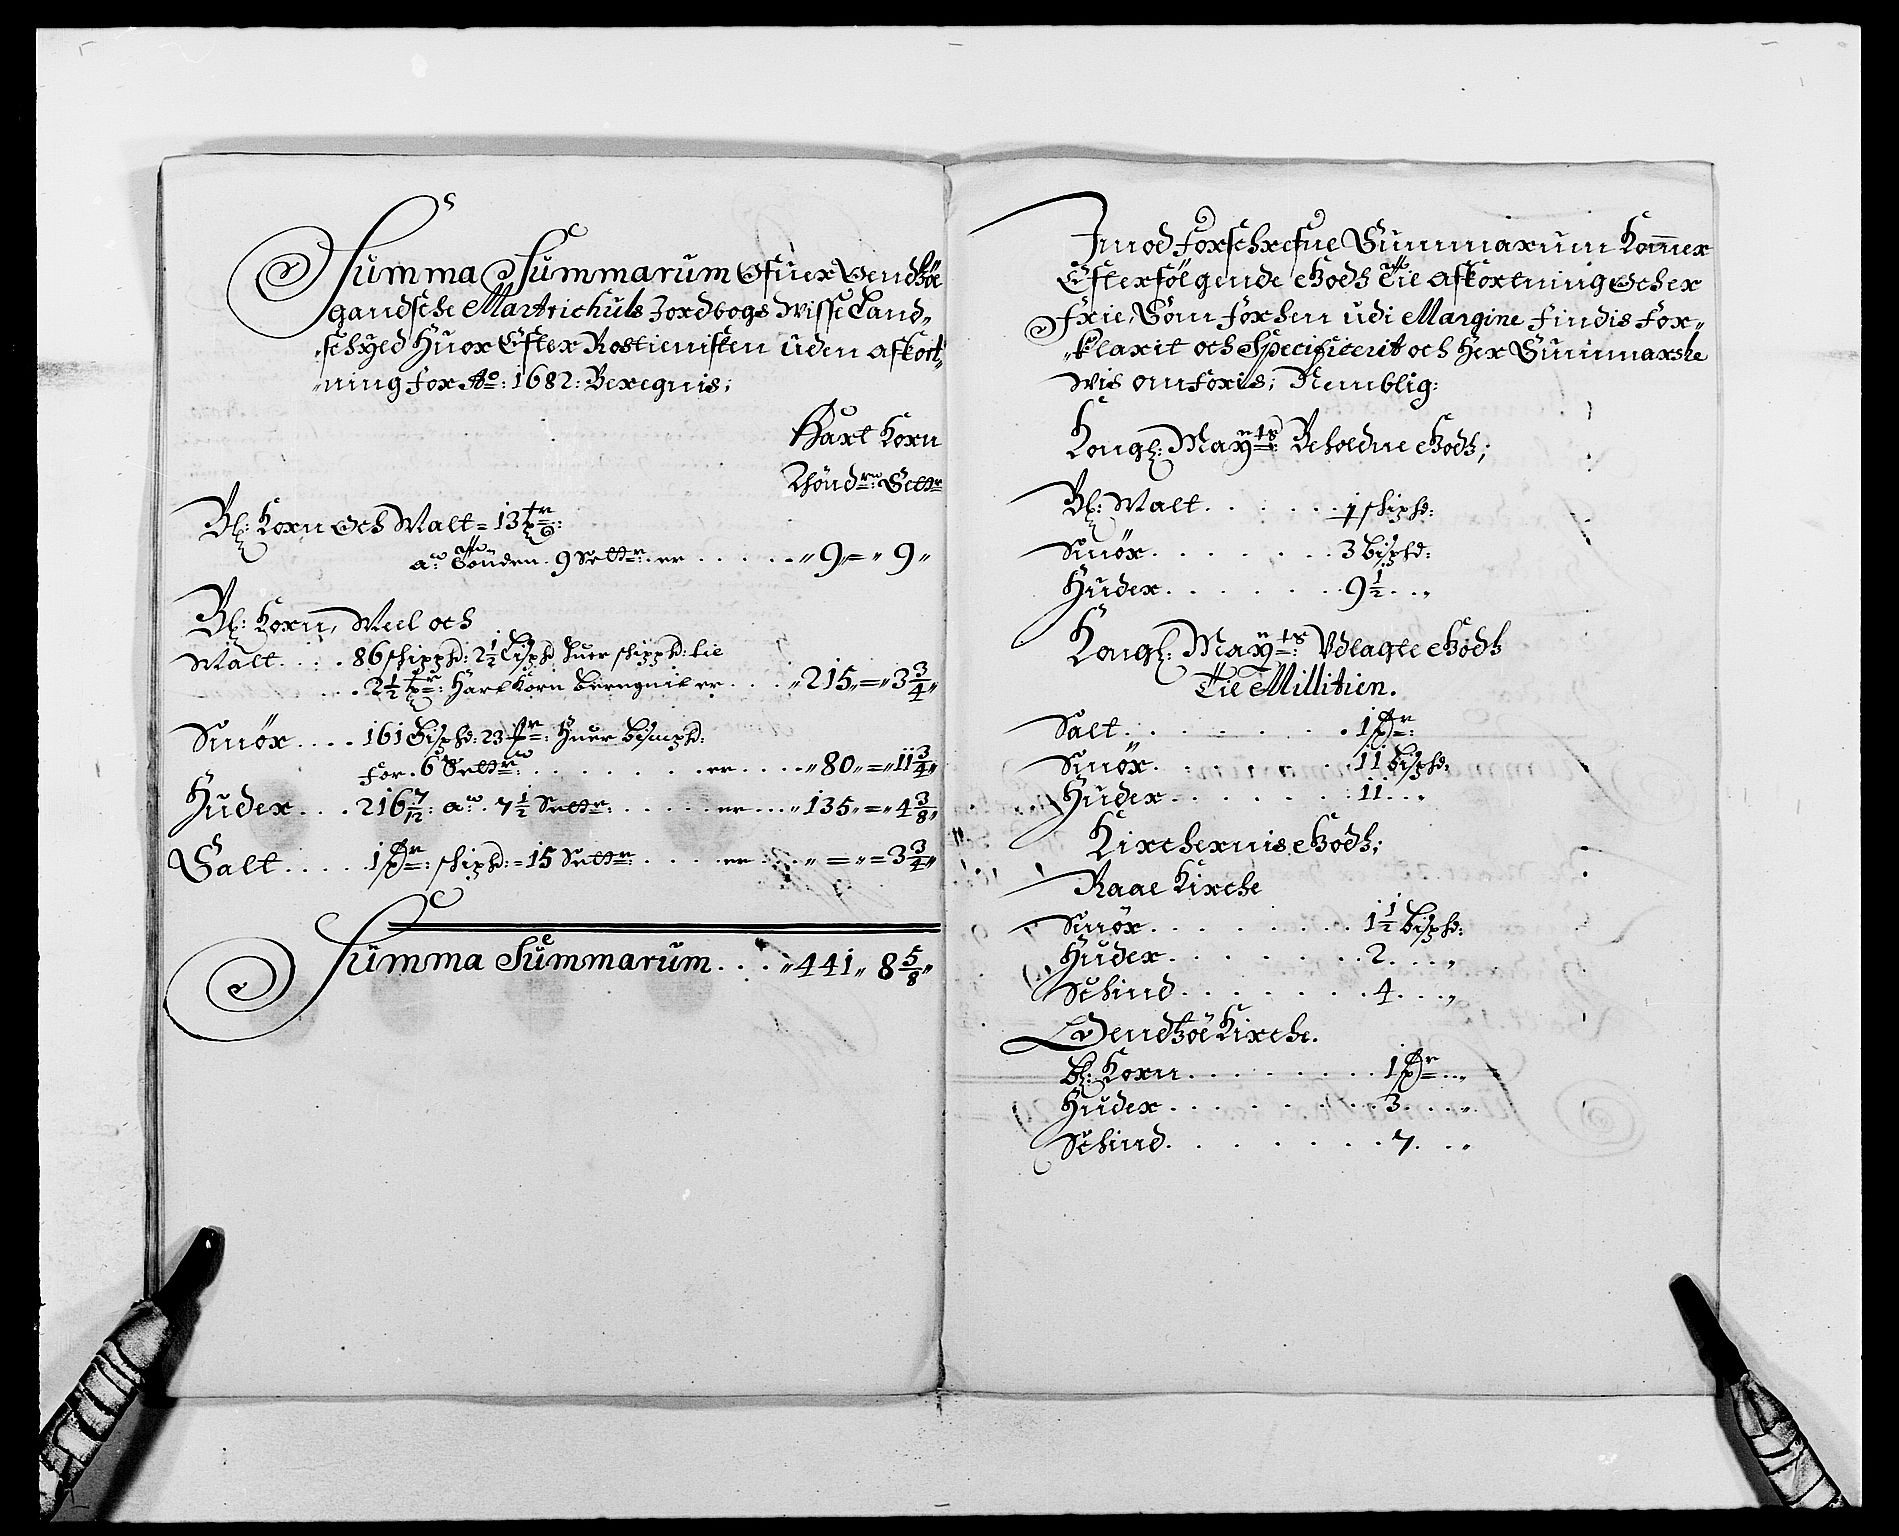 Summa Summarum Ofuer Wendsöe
gandsche Martrichuls Jordbogs Wisse Land„
„schyld Huor Efter Rostienisten uden afkort„
„ning for Ao: 1682: Beregnis;
Hart Korn
Thönd: Sett
Bl: Korn Och Malt = 13
a Tönden 9 Sett er . . . . . „ 9 „ = „ 9 „
Bl: Korn, Meel och
Malt . . . . 86 schippd: 2½ Lispd huer schippd: til
. . 2½ : Hart Korn beregnit er . . . „ 215 „ = „ 3¾ „
Smör . . . . 161 Bispd: 23 : Huer Bismpd:
for 6 Sett . . . . . . er . . . . „ 80 „ = „ 11¾ „
Huder . . . 216 7/12: a 7½ Sett . . . . . er . . . „ 135 „ = „ 4⅜ „
Salt . . . . . 1 : schipd: = 15 Sett . . . . er . . . „ = „ = 3¾ „
Summa Summarum . . . „ 441 „ 8⅝ „
Imod forschrefne Summarum Kommer
Efterfölgende Gods Til Afkortning Och er
frie, Som for hen udi Margine findis for„
„klarit och Specificerit och her Summarske
wis omföris; Nemblig:
Kongl: Mayts Beholdne Gods;
Bl: Malt . . . . . . 1 schipd:
Smör . . . . . . 3 Bispd:
Huder . . . . . . 9½ . . „
Kongl: Mayts Udlagte Gods
Til Millitien.
Salt . . . . . . . 1
Smör . . . . . . 11 Bispd:
Huder . . . . . . 11 . . „
Kirchernis Gods;
Raae Kirche
Smör . . . . . . . 1½ Bispd:
Huder . . . . . . . 2 . . . „
Schind . . . . . . . 4 . . . „
Wendsöe Kirche.
Bl: Korn . . . . . . . . 1 . . „
Huder . . . . . . . . 3 . . . „
Schind . . . . . . . . 7 . . „